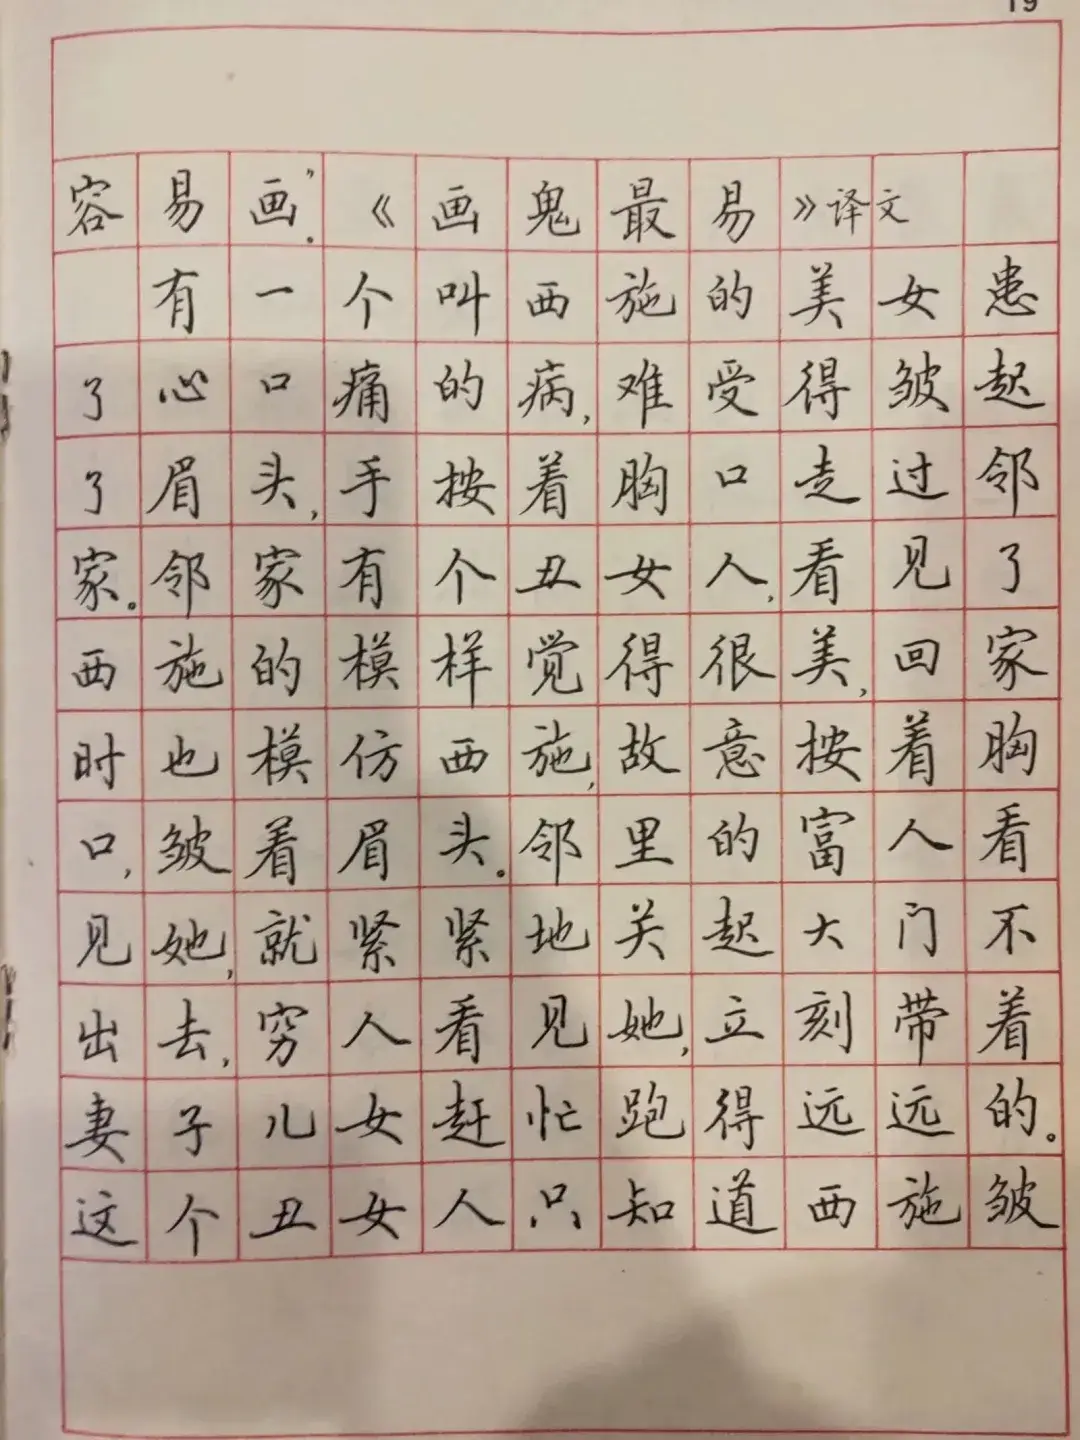 19
容易画”。《画鬼最易》译文
有一个叫西施的美女患
了心口痛的病,难受得皱起
了眉头,手按着胸口走过邻
家。邻家有个丑女人,看见了
西施的模样觉得很美,回家
时也模仿西施,故意按着胸
口,皱着眉头。邻里的富人看
见她,就紧紧地关起大门不
出去,穷人看见她,立刻带着
妻子儿女赶忙跑得远远的。
这个丑女人只知道西施皱